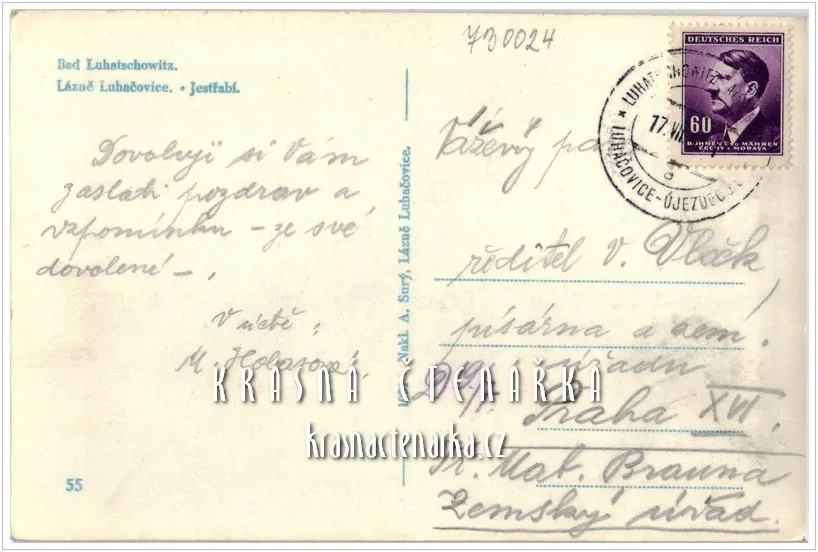 730024
Bad Luhatschowitz.
Lázně Luhačovice. • Jestřabí.
DEUTSCHES REICH
60
BÖHMEN UND MÄHREN
ČECHY A MORAVA
LUHATSCHOWITZ
17.VII
LUHAČOVICE-ÚJEZDEC
a
Dovoluji si Vám
zaslati pozdrav a
vzpomínku – ze své
dovolené –.
V úctě:
M.
Nakl. A. Surý, Lázně Luhačovice.
Vážený
ředitel v. Vlček
písárna a zem.
úřadu
Praha XVI
Tř. Mat. Brauna
Zemský úřad.
KRÁSNÁ ČTENÁŘKA
krasnactenarka.cz
55